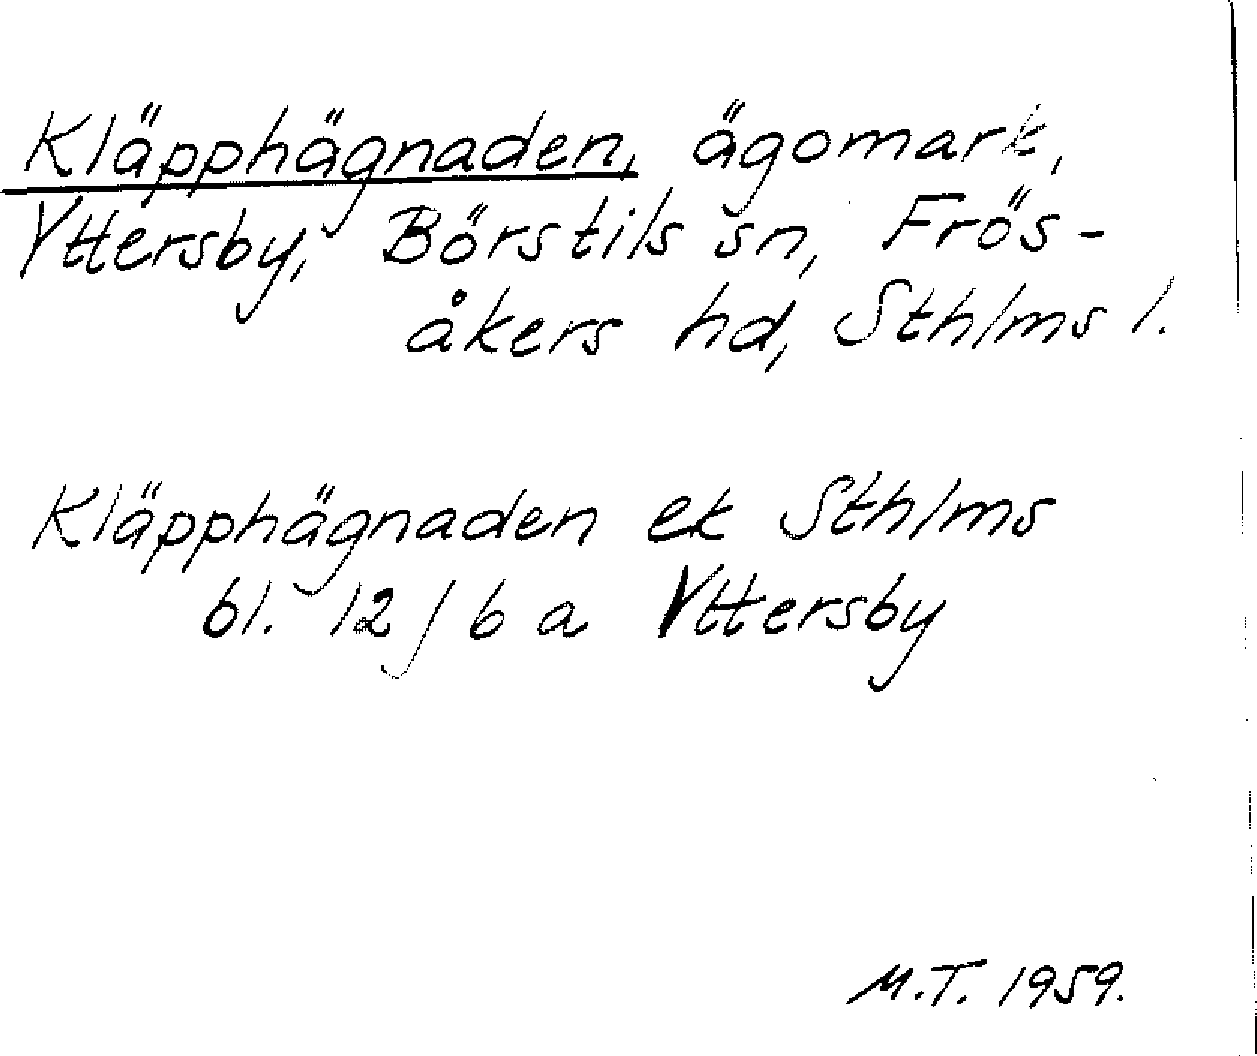 Kläpphägnaden, ägomark,
Yttersby, Börstils sn, Frös-
åkers hd, Sthlms l.
Kläpphägnaden ek Sthlms
bl. 12 / 6 a Yttersby
M.T. 1959.